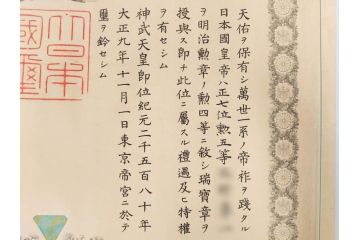 天佑ヲ保有シ萬世一系ノ帝祚ヲ踐タル
日本國皇帝ハ正七位勲五等
ヲ明治勲章ノ勲四等ニ敍シ瑞寶章ヲ
授與ス即チ此位ニ屬スル禮遇及ヒ特權
ヲ有セシム
神武天皇即位紀元二千五百八十年
大正九年十一月一日東京帝宮ニ於テ
璽ヲ鈐セシム
大日本
國璽